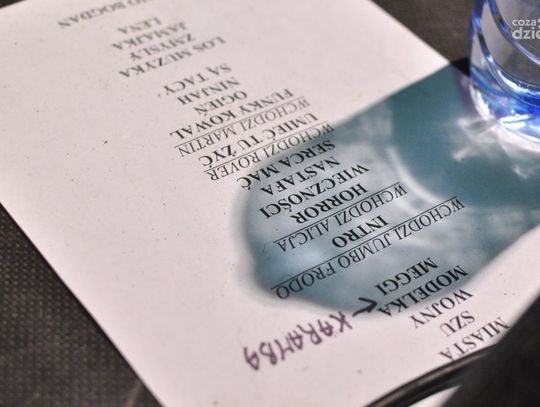 MIASTA
SZU
WOJNY
MODELKA
KARAMBA
MEGGI
WCHODZI JUMBO FRODO
INTRO
WCHODZI ALICJA
HORROR
WIECZNOŚCI
NASTAFA
SERCA MAĆ
WCHODZI ROVER
UMIEĆ TU ŻYĆ
WCHODZI MARTIN
FUNKY KOWAL
OGIEŃ
NINJAH
SĄ TACY
LOS MUZYKA
ZMYSŁY
JAMAJKA
LENA
BOGDAN
coza
dzie